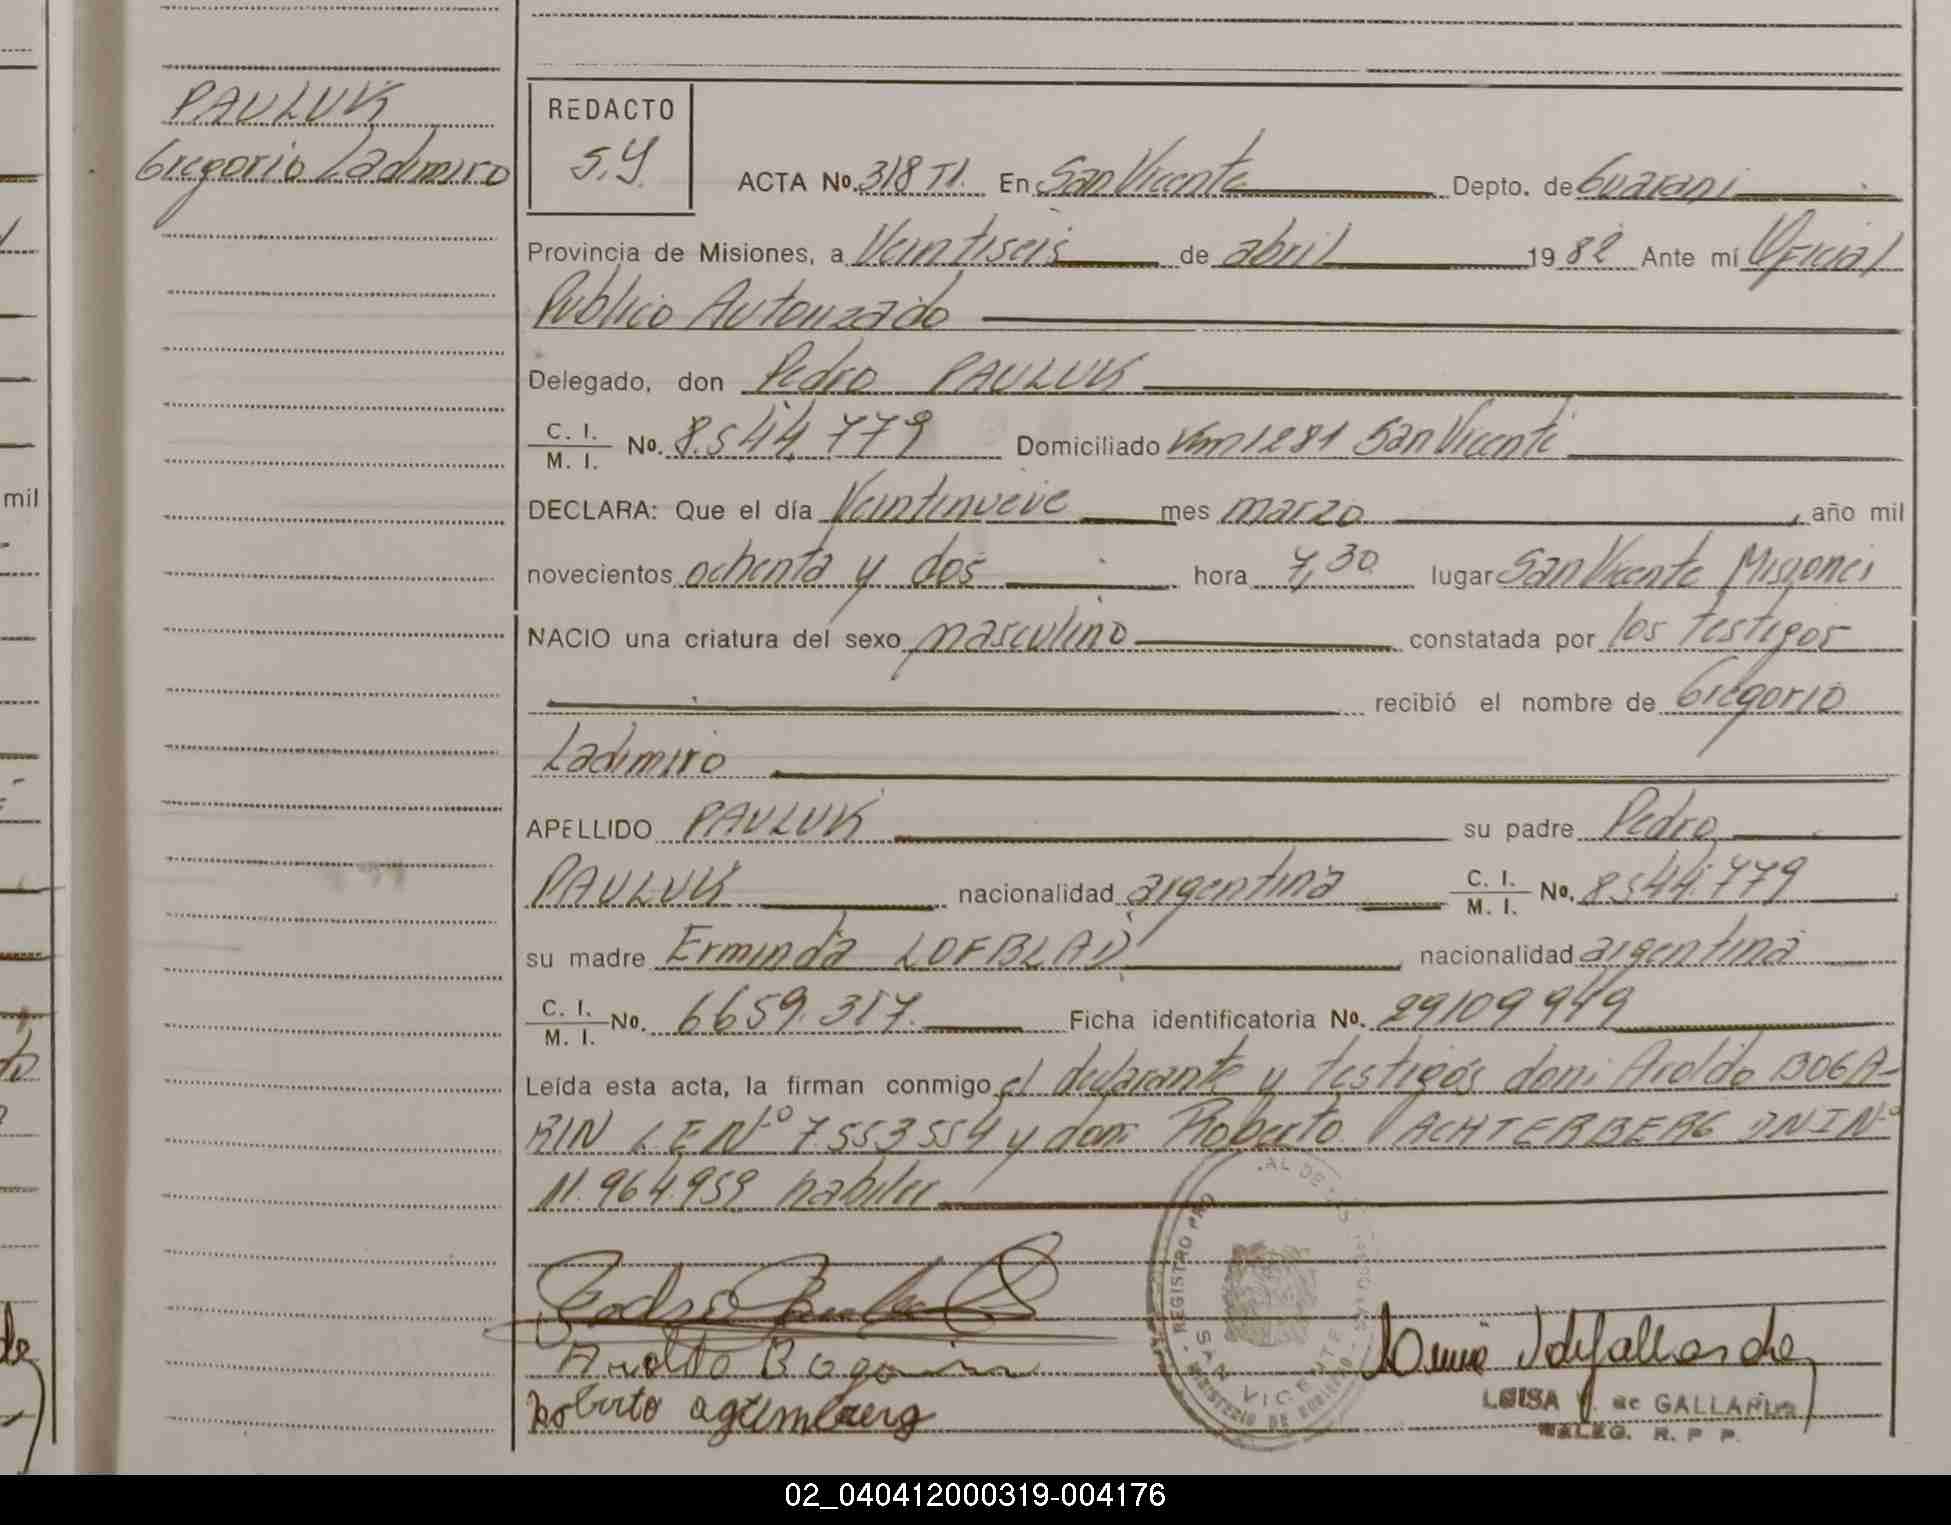 PAULUK
Gregorio Ladimiro
REDACTO
S.Y.
ACTA No. 318 TI. En San Vicente Depto. de Guarani
Provincia de Misiones, a Veintiseis de abril 1982 Ante mí Oficial
Publico Autorizado
Delegado, don Pedro PAULUK
C. I. M. I. No. 8.544.779 Domiciliado Km 1281 San Vicente
DECLARA: Que el día Veintinueve mes marzo, año mil
novecientos ochenta y dos hora 7,30 lugar San Vicente Misiones
NACIO una criatura del sexo masculino constatada por los testigos
recibió el nombre de Gregorio
Ladimiro
APELLIDO PAULUK su padre Pedro
PAULUK nacionalidad argentina C. I. M. I. No. 8544.779
su madre Erminda LOFBLAD nacionalidad argentina
C. I. M. I. No. 6659.317. Ficha identificatoria No. 29109949
Leída esta acta, la firman conmigo el declarante y testigos don: Aroldo BOGA-
RIN LE Nº 7.553554 y don: Roberto VACHTERBERG DNI Nº
11.964.959 habiles
Aroldo Bogarin
Roberto agtemberg
REGISTRO PRO
SAN VICENTE
MINISTERIO DE GOBIERNO
LUISA Y. de GALLARDO
DELEG. R. P P.
mil
02_040412000319-004176